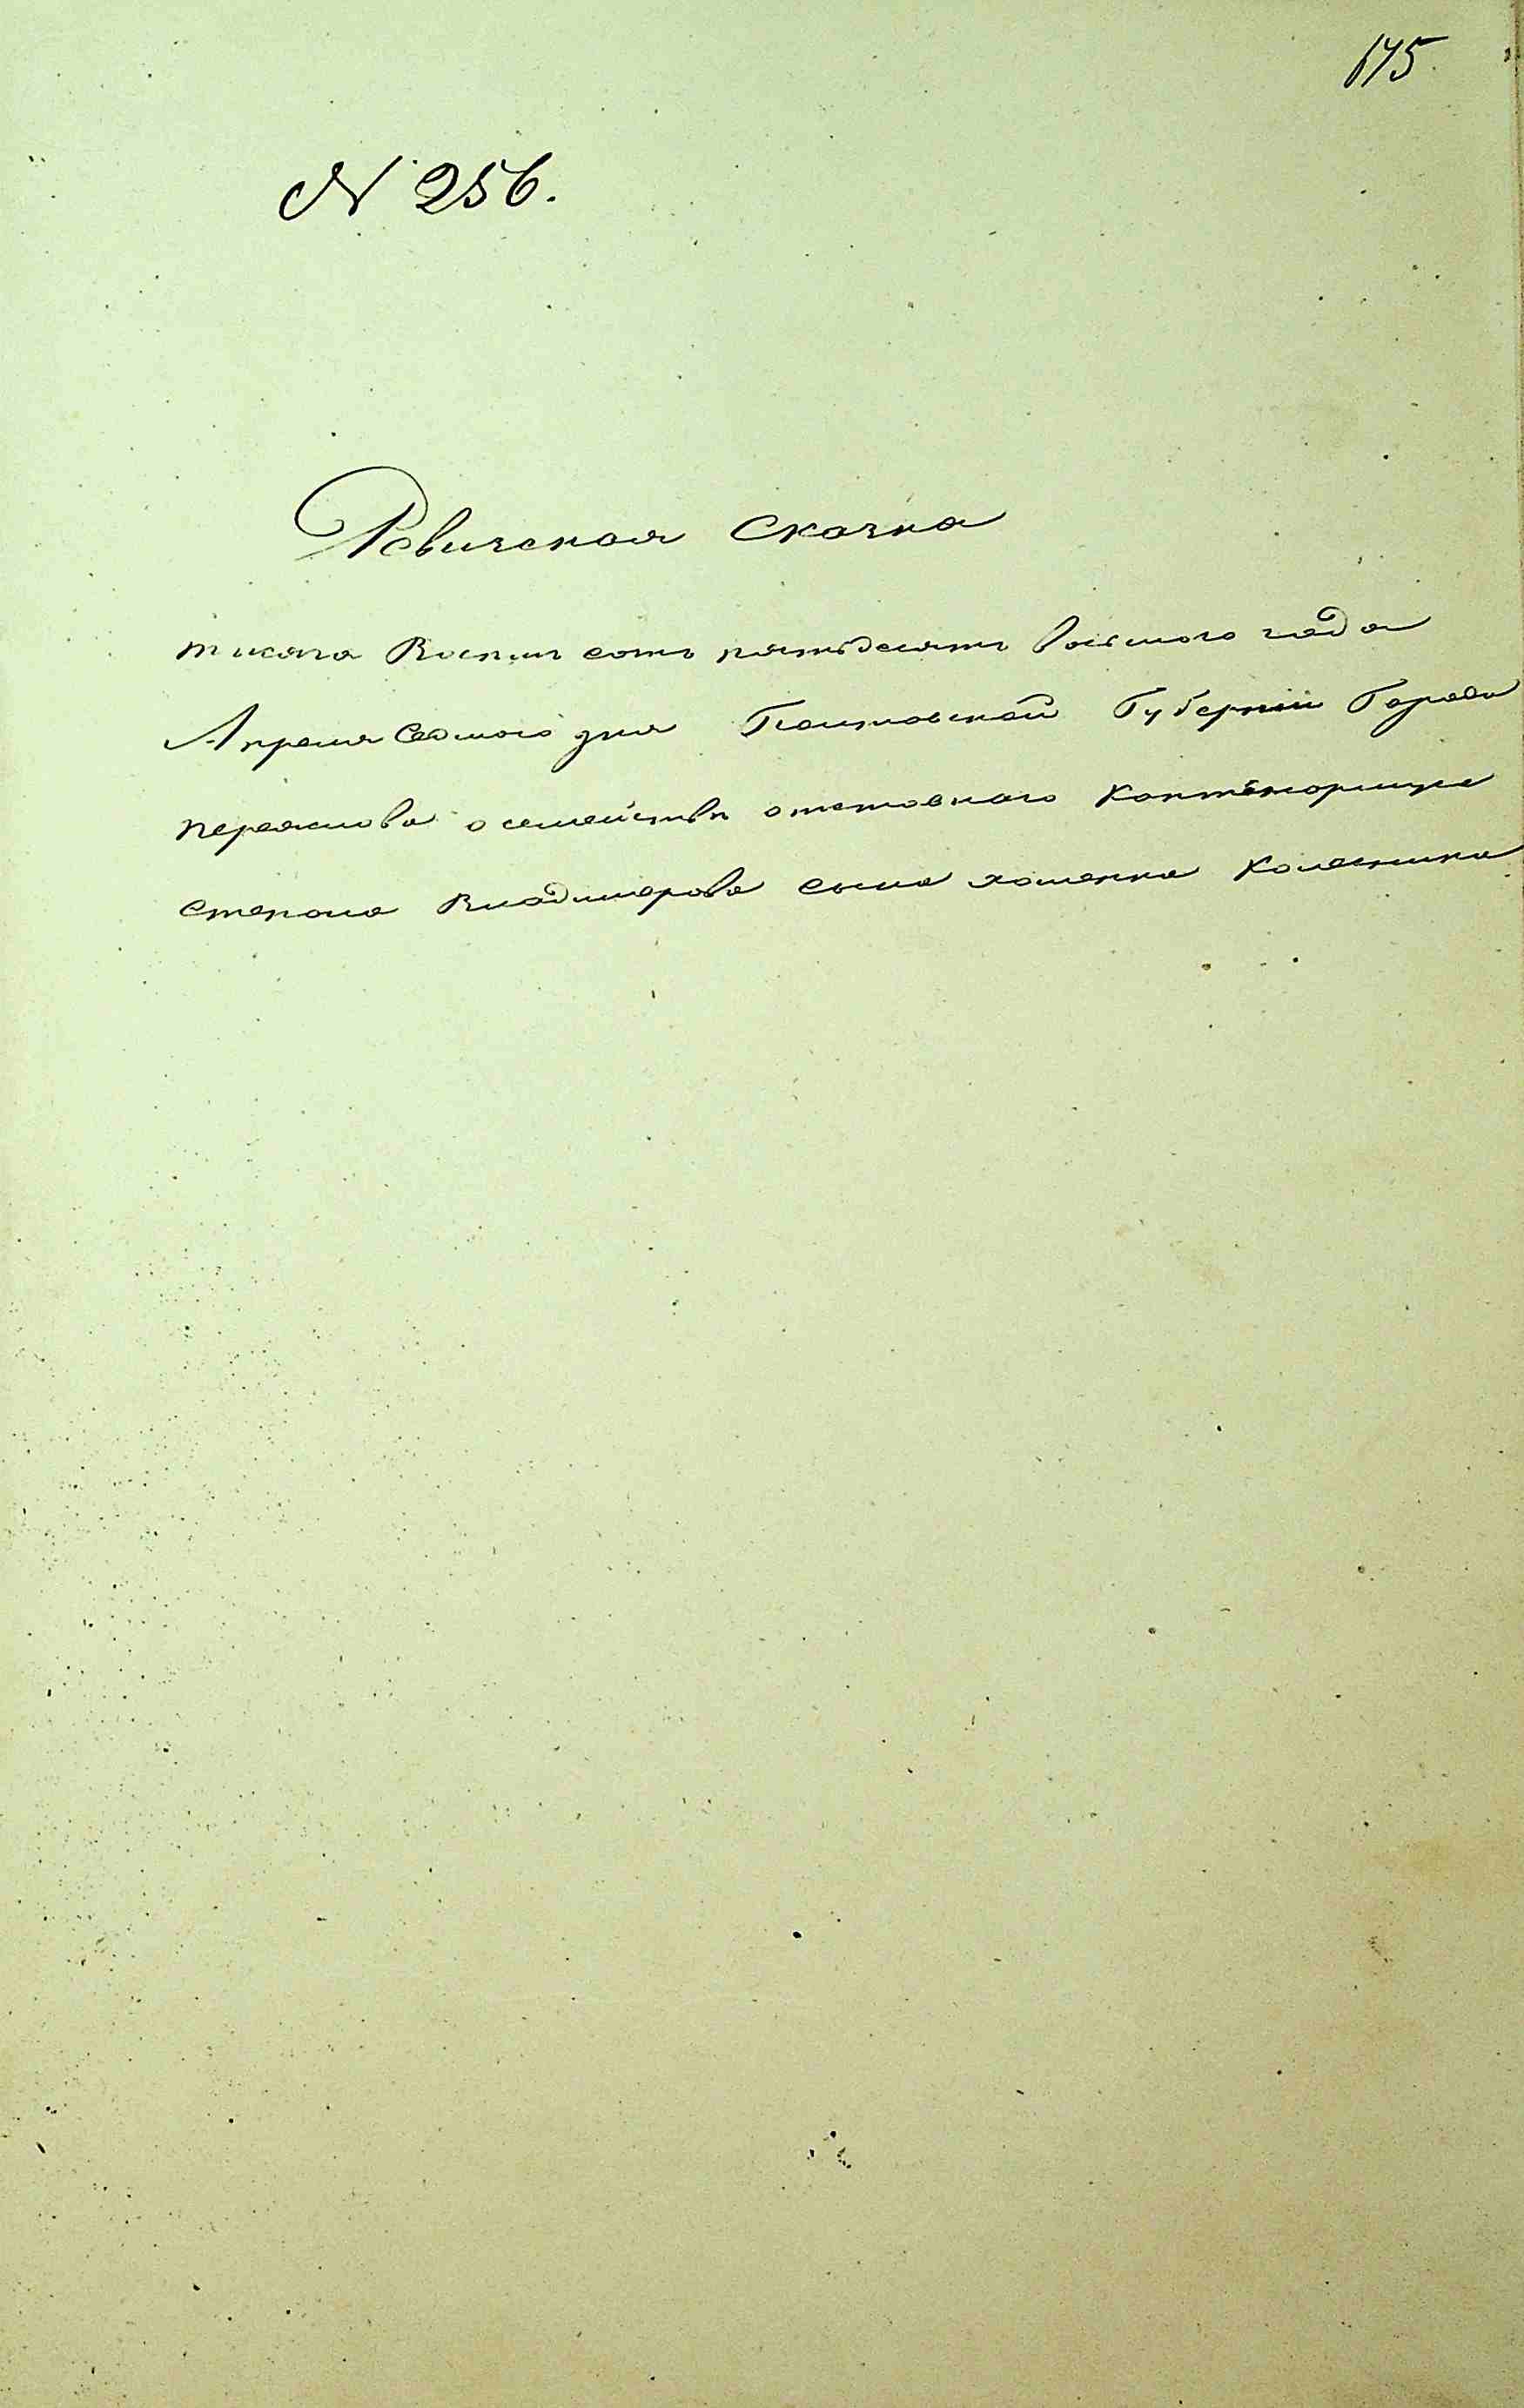 675.
N 256.
Ревизская Сказка
тисяча Восемь сотъ пятьдесятъ восьмого года
Апреля Седмого дня Полтовской Губерніи Города
переяслова о семействѣ отставного
степона Владимерова сына хоменка Колесника